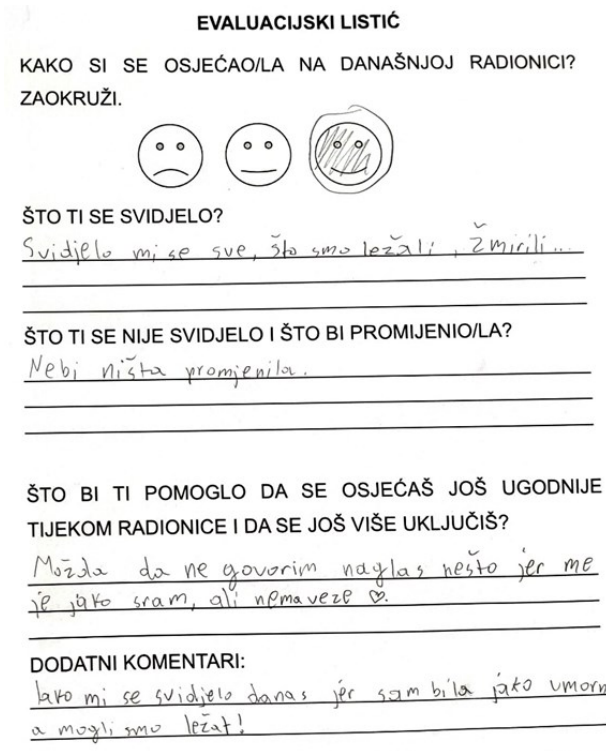 EVALUACIJSKI LISTIĆ
KAKO SI SE OSJEĆAO/LA NA DANAŠNJOJ RADIONICI?
ZAOKRUŽI.
ŠTO TI SE SVIDJELO?
Svidjelo mi se sve, što smo ležali, žmirili...
ŠTO TI SE NIJE SVIDJELO I ŠTO BI PROMIJENIO/LA?
Nebi ništa promjenila.
ŠTO BI TI POMOGLO DA SE OSJEĆAŠ JOŠ UGODNIJE
TIJEKOM RADIONICE I DA SE JOŠ VIŠE UKLJUČIŠ?
Možda da ne govorim naglas nešto jer me
je jako sram, ali nemaveze ♡.
DODATNI KOMENTARI:
Jako mi se svidjelo danas jer sam bila jako umorn
a mogli smo ležat!